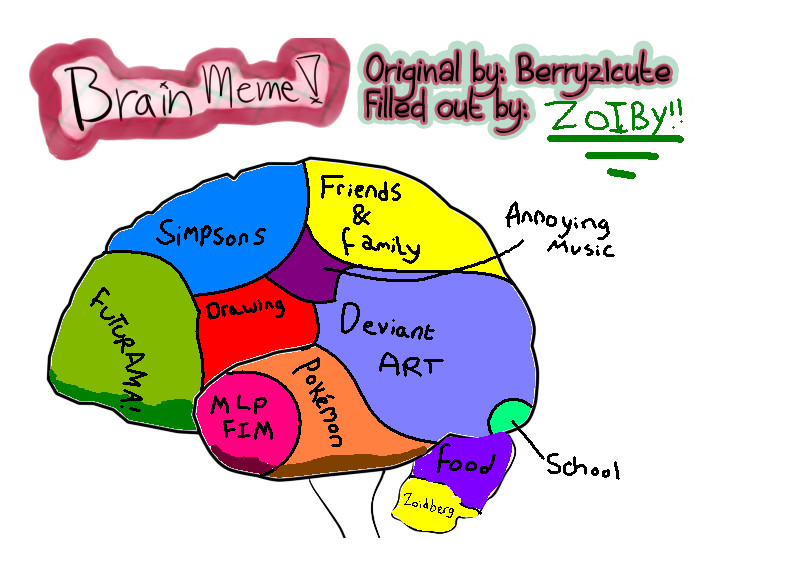 Brain Meme!
Original by: Berry21cute
Filled out by: ZOIBY!!
Friends
&
family
Simpsons
Annoying
Music
FUTURAMA!!
Drawing
Deviant
ART
MLP
FIM
Pokémon
food
School
Zoidberg